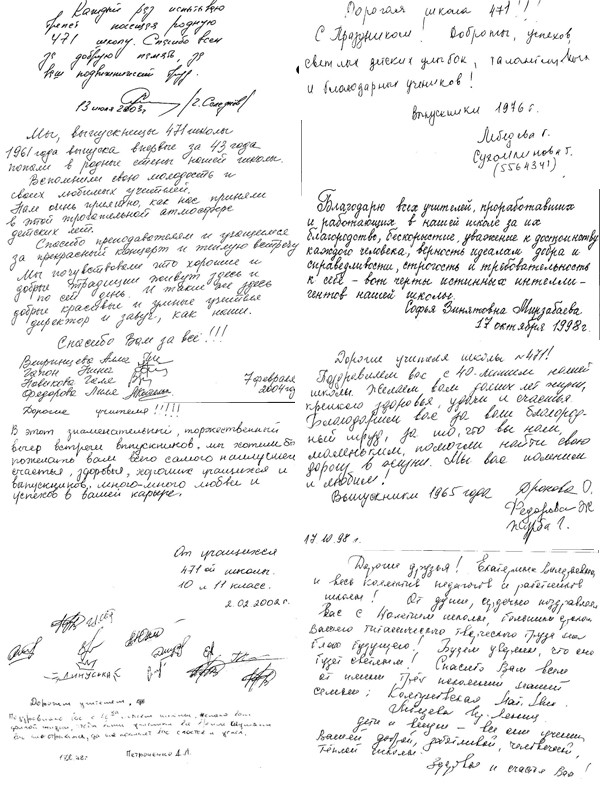 Каждый раз испытываю
трепет посещая родную
471 школу. Спасибо всем
за добрую память, за
ваш подвижнический труд.
13 июля 2003г.
Мы, выпускницы 471 школы
1961 года выпуска впервые за 43 года
попали в родные стены нашей школы.
Вспомнили свою молодость и
своих любимых учителей.
Нам очень приятно, как нас приняли
в этой трогательной атмосфере
детских лет.
Спасибо преподавателям и учащимся
за прекрасный концерт и теплую встречу
Мы почувствовали что хорошие и
добрые традиции живут здесь и
по сей день. И такие же здесь
добрые красивые и умные учителя
директор и завуч, как наши.
Спасибо Вам за всё!!!
Гапон Нина
Новикова Галя
Федорова Лиля
7 февраля
2004 год
Дорогие учителя!!!!!
В этот знаменательный, торжественный
вечер встречи выпускников, мы хотим бы
пожелать вам всего самого наилучшего
счастья, здоровья, хороших учащихся и
выпускников, много-много любви и
успехов в вашей карьере.
От учащихся
471ой школы.
10 и 11 класс.
2.02.2002г.
Дорогим учителям,
Петроченко Д.А.
Дорогая школа 471!!!
С Праздником! Доброты, успехов,
светлых детских улыбок, талантливых
и благодарных учеников!
Выпускники 1976 г.
Лебедева Г.
(5564341)
Благодарю всех учителей, проработавших
и работающих в нашей школе за их
благородство, бескорыстие, уважение к достоинству
каждого человека, верность идеалам добра и
справедливости, строгость и требовательность
к себе - вот черты истинных интелли-
гентов нашей школы.
Софья Зинятовна Мирзабаева
17 октября 1998г.
Дорогие учителя школы №471!
Поздравляем вас с 40-летием нашей
школы. Желаем вам долгих лет жизни,
крепкого здоровья, удачи и счастья.
Благодарим вас за ваш благород-
ный труд, за то, что вы нам,
маленьким, помогли найти свою
дорогу в жизни. Мы вас помним
и любим!
Выпускники 1965 года
Федорова Ж
17.10.98 г.
Дорогие друзья! Екатерина
и весь коллектив педагогов и работников
школы! От души, сердечно поздравляю
Вас с 40летием школы, большим сроком
Вашего титанического творческого труда на
благо будущего! Будем уверены, что оно
будет светлым! Спасибо Вам всем
от имени трёх поколений нашей
семьи:
дети и внуки - все они ученики
Вашей доброй, заботливой, человечной,
тёплой школы.
Здоровья и счастья Вам!